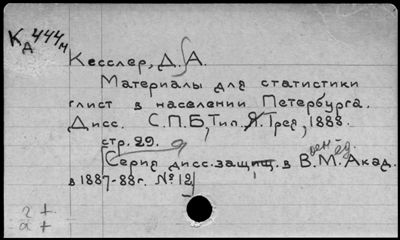 К 444н
д
Кесслер, Д. А.
Материалы для статистики
глист в населении Петербурга.
Дисс. С.П.Б, Тип. Я. Трея, 1888.
стр. 29.
(Серия дисс. защищ. в В.М. Акад.
в 1887-88г. № 12)
2 +